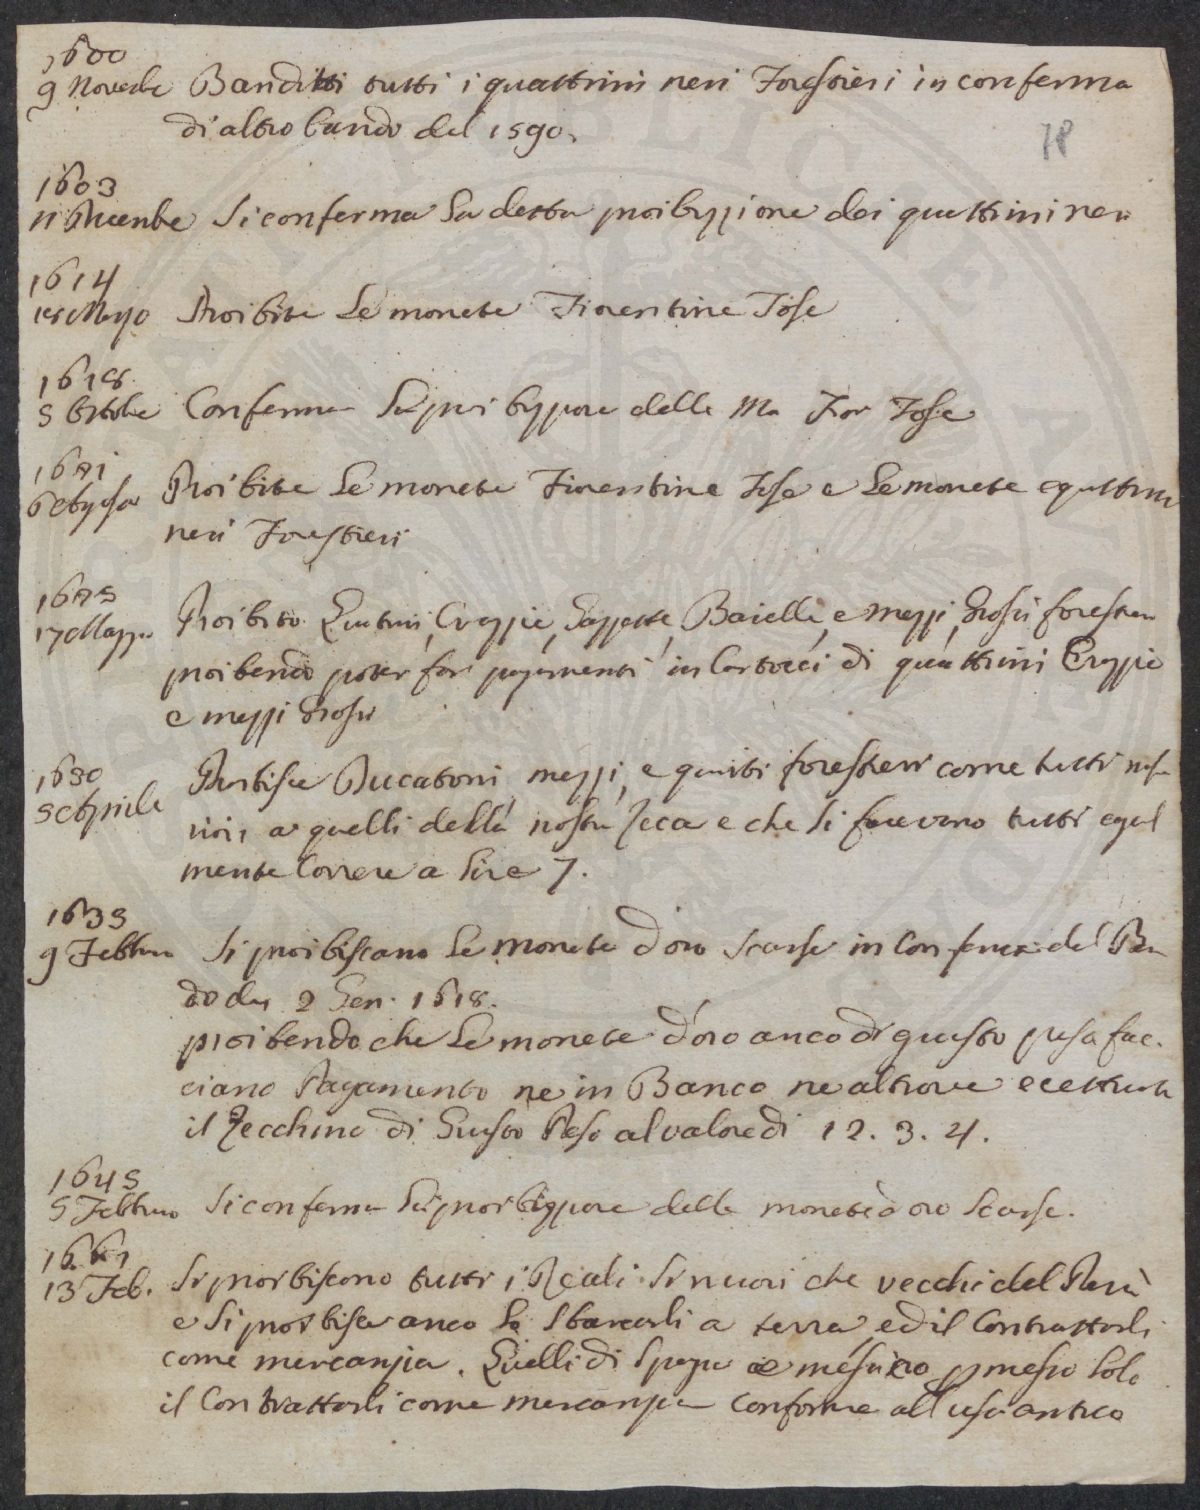 1600
9 Novembe Banditti tutti i quattrini neri Forestieri in conferma
di altro bando del 1590.
18
1603
11 Dicenbe Si conferma la detta proibizzione dei quattrini neri
1614
Proibite Le monete Fiorentine Tose
1618
5 Ottobe Conferma La proibizzione delle Mo Fior Tose
1621
6 Agosto Proibite Le monete Fiorentine Tose e Le monete e quattrini
neri Forestieri
1625
17 Maggio Proibito Quattrini, Crazzie, Gazzette, Baielle, e mezzi Grossi forestieri
proibendo poter far pagamenti in Cartocci di quattrini Crazzie
e mezzi Grossi
1630
5 Aprile Ducatoni mezzi, e quinti forestieri come tutti
a quelli della nostra Zecca e che si facevano tutti egual
mente Correre a Lire 7.
1635
9 Febbraro Si proibiscano Le monete d'oro scarse in Conferma del Ban
do dei 2 Gen. 1618.
proibendo che Le monete d'oro anco di giusto peso fac-
ciano Pagamento ne in Banco ne altrove eccettuato
il Zecchino di Giusto Peso al valore di 12. 3. 4.
1645
5 Febbraro Si conferma La proibizzione delle monete d'oro Scarse.
1661
13 Feb. Si proibiscono tutti i Reali Si nuovi che vecchi del Perù
e Si proibisce anco Lo Sbarcarli a terra, ed il Contrattarli
come mercanzia. Quelli di Spagna e messico pmesso solo
il Contrattarli come mercanzia conforme all uso antico